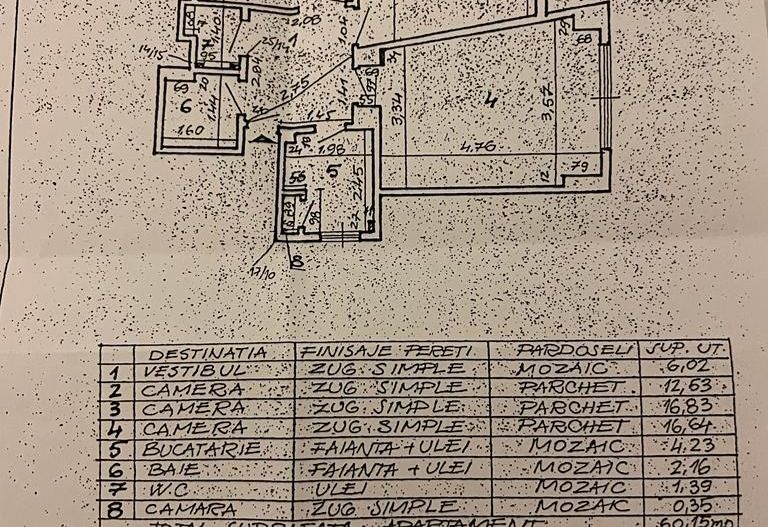 2.08
1.04
1.40
14/15
25/14
1
2.04
2.75
1.41
3.34
4
3.57
29
68
69
20
6
1.44
1.60
1.45
24
1.98
4.76
79
12
5
56
2.45
98
22
17/10
8
DESTINATIA FINISAJE PERETI PARDOSELI SUP. UT.
1 VESTIBUL ZUG SIMPLE MOZAIC 6,02
2 CAMERA ZUG SIMPLE PARCHET 12,63
3 CAMERA ZUG SIMPLE PARCHET 16,83
4 CAMERA ZUG SIMPLE PARCHET 16,64
5 BUCATARIE FAIANTA + ULEI MOZAIC 4,23
6 BAIE FAIANTA + ULEI MOZAIC 2,16
7 W.C ULEI MOZAIC 1,39
8 CAMARA ZUG SIMPLE MOZAIC 0,35
TOTAL SUPRAFATA APARTAMENT